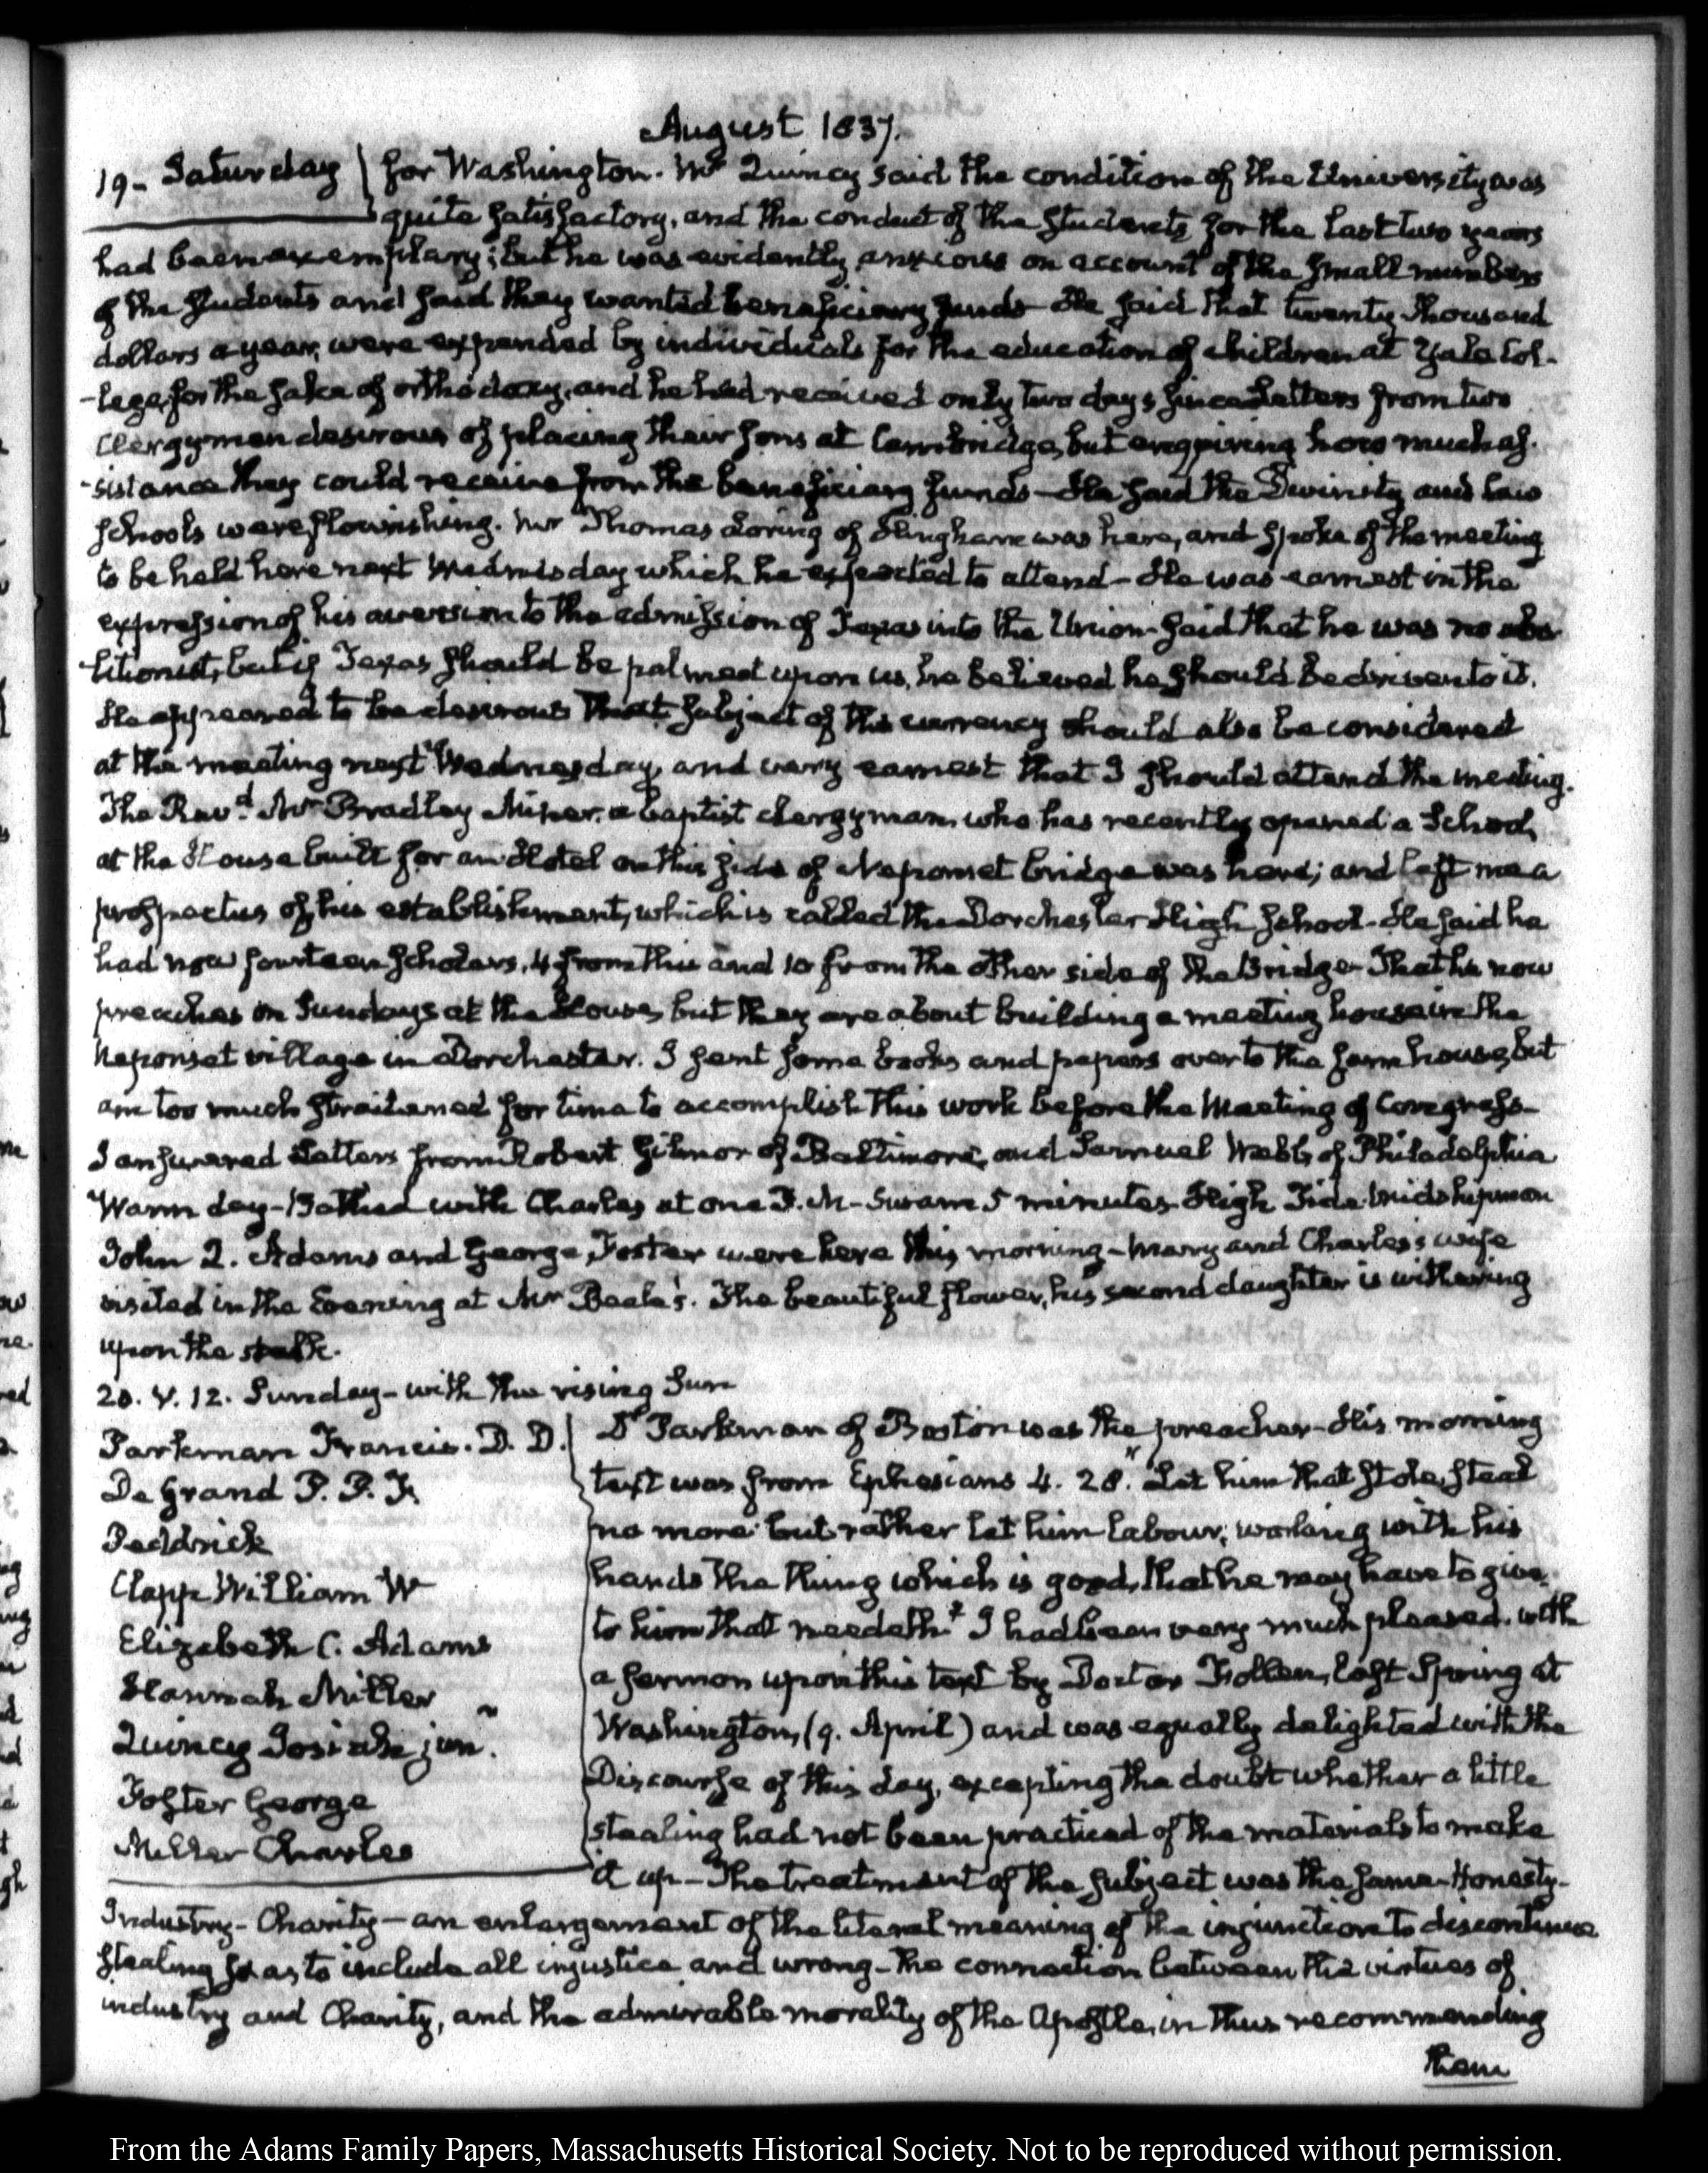 August 1837.
19- Saturday for Washington. Mr Quincy said the condition of the University was
quite satisfactory, and the conduct of the Students for the last two years
had been exemplary; but he was evidently anxious on account of the small numbers
of the Students and said they wanted beneficiary funds– He said that twenty thousand
dollars a year, were expended by individuals for the education of children at Yale Col-
-lege, for the sake of orthodoxy, and he had received only two days since Letters from two
Clergymen desirous of placing their Sons at Cambridge, but enquiring how much as-
-sistance they could receive from the beneficiary funds– He said the Divinity and Law
Schools were flourishing. Mr Thomas Loring of Hingham was here, and spoke of the meeting
to be held here next Wednesday which he expected to attend– He was earnest in the
expression of his aversion to the admission of Texas into the Union– Said that he was no abo-
-litionist, but if Texas should be palmed upon us, he believed he should be driven to it.
He appeared to be desirous that subject of the currency should also be considered
at the meeting next Wednesday, and very earnest that I should attend the meeting.
The Revd. Mr Bradley Miner, a baptist clergyman who has recently opened a School,
at the House built for an Hotel on this side of Neponset bridge was here; and left me a
prospectus of his establishment, which is called the Dorchester High School– He said he
had now fourteen Scholars, 4 from this and 10 from the other side of the Bridge– That he now
preaches on Sundays at the House, but they are about building a meeting house in the
Neponset village in Dorchester. I sent some books and papers over to the farm house, but
am too much straitened for time to accomplish this work before the Meeting of Congress–
I answered Letters from Robert Gilmor of Baltimore, and Samuel Webb, of Philadelphia
Warm day– Bathed with Charles at one P.M– Swam 5 minutes– High Tide. Midshipman
John Q. Adams and George Foster were here this morning– Mary and Charles's wife
visited in the Evening at Mr Beale's. The beautiful flower, his second daughter is withering
upon the stalk.
20. V. 12. Sunday– with the rising Sun
Parkman Francis. D. D.
De Grand P. P. F.
Peddrick
Clapp William W
Elizabeth C. Adams
Hannah Miller
Quincy Josiah jun.
Foster George
Miller Charles
Dr Parkman of Boston was the preacher– His morning
text was from Ephesians 4. 28. "Let him that stole, steal
no more: but rather let him labour, working with his
hands the thing which is good, that he may have to give
to him that needeth." I had been very much pleased with
a sermon upon this text by Doctor Follen, last Spring at
Washington, (9. April) and was equally delighted with the
Discourse of this day, excepting the doubt whether a little
stealing had not been practiced of the materials to make
it up– The treatment of the subject was the same– Honesty–
Industry– Charity– an enlargement of the literal meaning of the injunction to discontinue
stealing so as to include all injustice and wrong– the connection between the virtues of
industry and Charity, and the admirable morality of the Apostle, in thus recommending
them
From the Adams Family Papers, Massachusetts Historical Society. Not to be reproduced without permission.